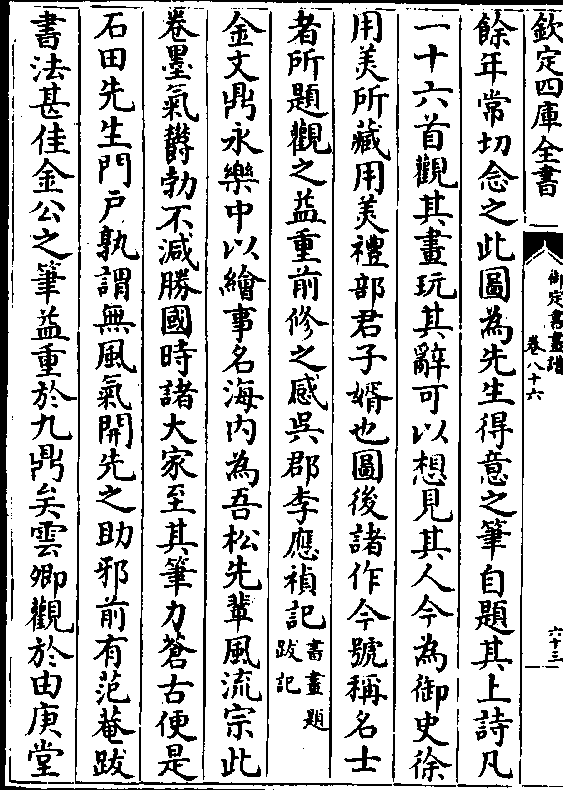 欽定四庫全書
御定書畫譜
卷八十六
六十三
餘年常切念之此圖為先生得意之筆自題其上詩凡
一十六首觀其畫玩其辭可以想見其人今為御史徐
用美所藏用美禮部君子婿也圖後諸作今號稱名士
者所題觀之益重前修之感吳郡李應禎記書畫題
跋記
金文鼎永樂中以繪事名海内為吾松先輩風流宗此
卷墨氣欝勃不減勝國時諸大家至其筆力蒼古便是
石田先生門戸孰謂無風氣開先之助邪前有范菴跋
書法甚佳金公之筆益重於九鼎矣雲卿觀於由庚堂